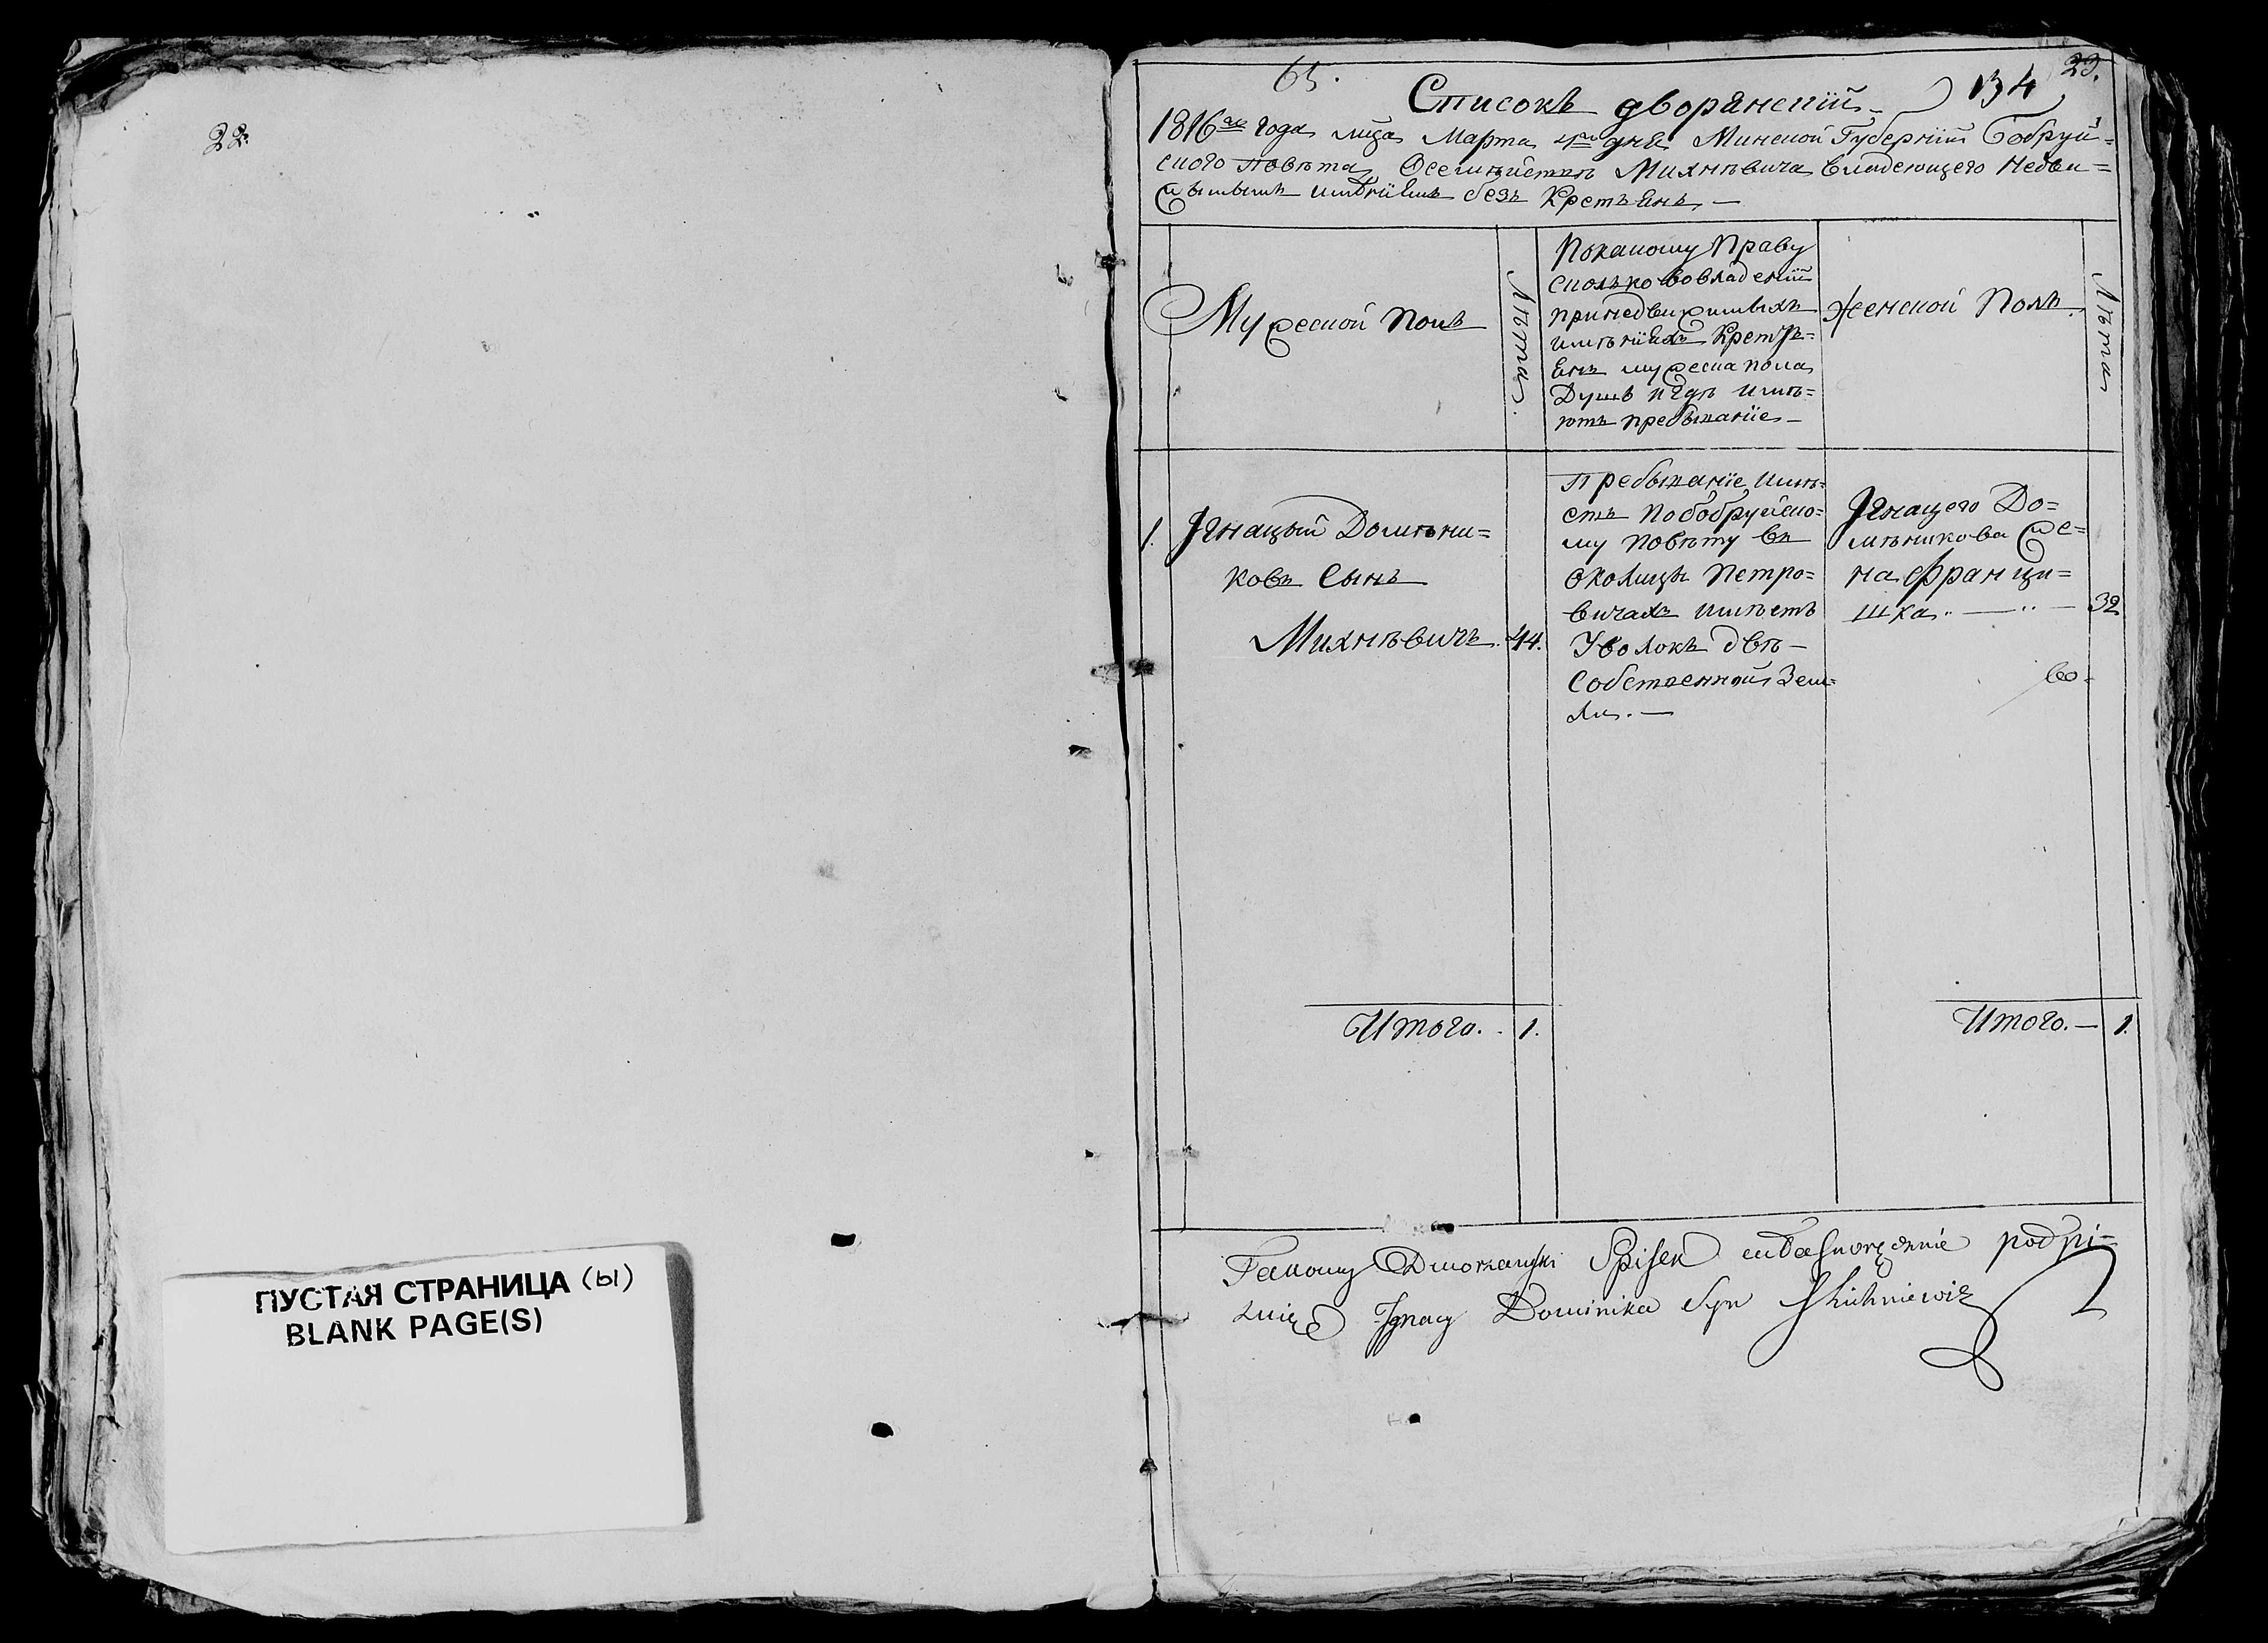 22.
ПУСТАЯ СТРАНИЦА (ы)
BLANK PAGE(S)
65.
134
23.
Списокъ дворянскій
1816го года мца Марта дня Минской Губерніи Бобруй=
ского повѣта, Осемѣйстве Михнѣвича владеющего Недви=
жымымъ имѣніемъ безъ Кретьянъ. —
Мужеской полъ
Лѣта.
Покакому Праву
сколько вовладеній
принедвижимыхъ
имѣніяхъ Кретъ=
янъ мужеска пола
Душъ игдѣ имѣ=
ютъ пребываніе —
Женской Полъ.
Лѣта
1. Ігнацый Домѣни=
ковъ Сынъ
Михнѣвичъ. 44.
пребываніе имѣ=
етъ побобруйско=
му повѣту въ
околицѣ Петро=
вичахъ имѣетъ
Уволокъ двѣ —
Собственной Зем=
ли. —
Ігнацего До=
мѣникова Же=
на Францы=
шка 32
Итого. 1.
Итого. — 1.
Takowy Dworzanski Spisek własnoręcznie podpi=
Ignacy Dominika Syn Michniewicz